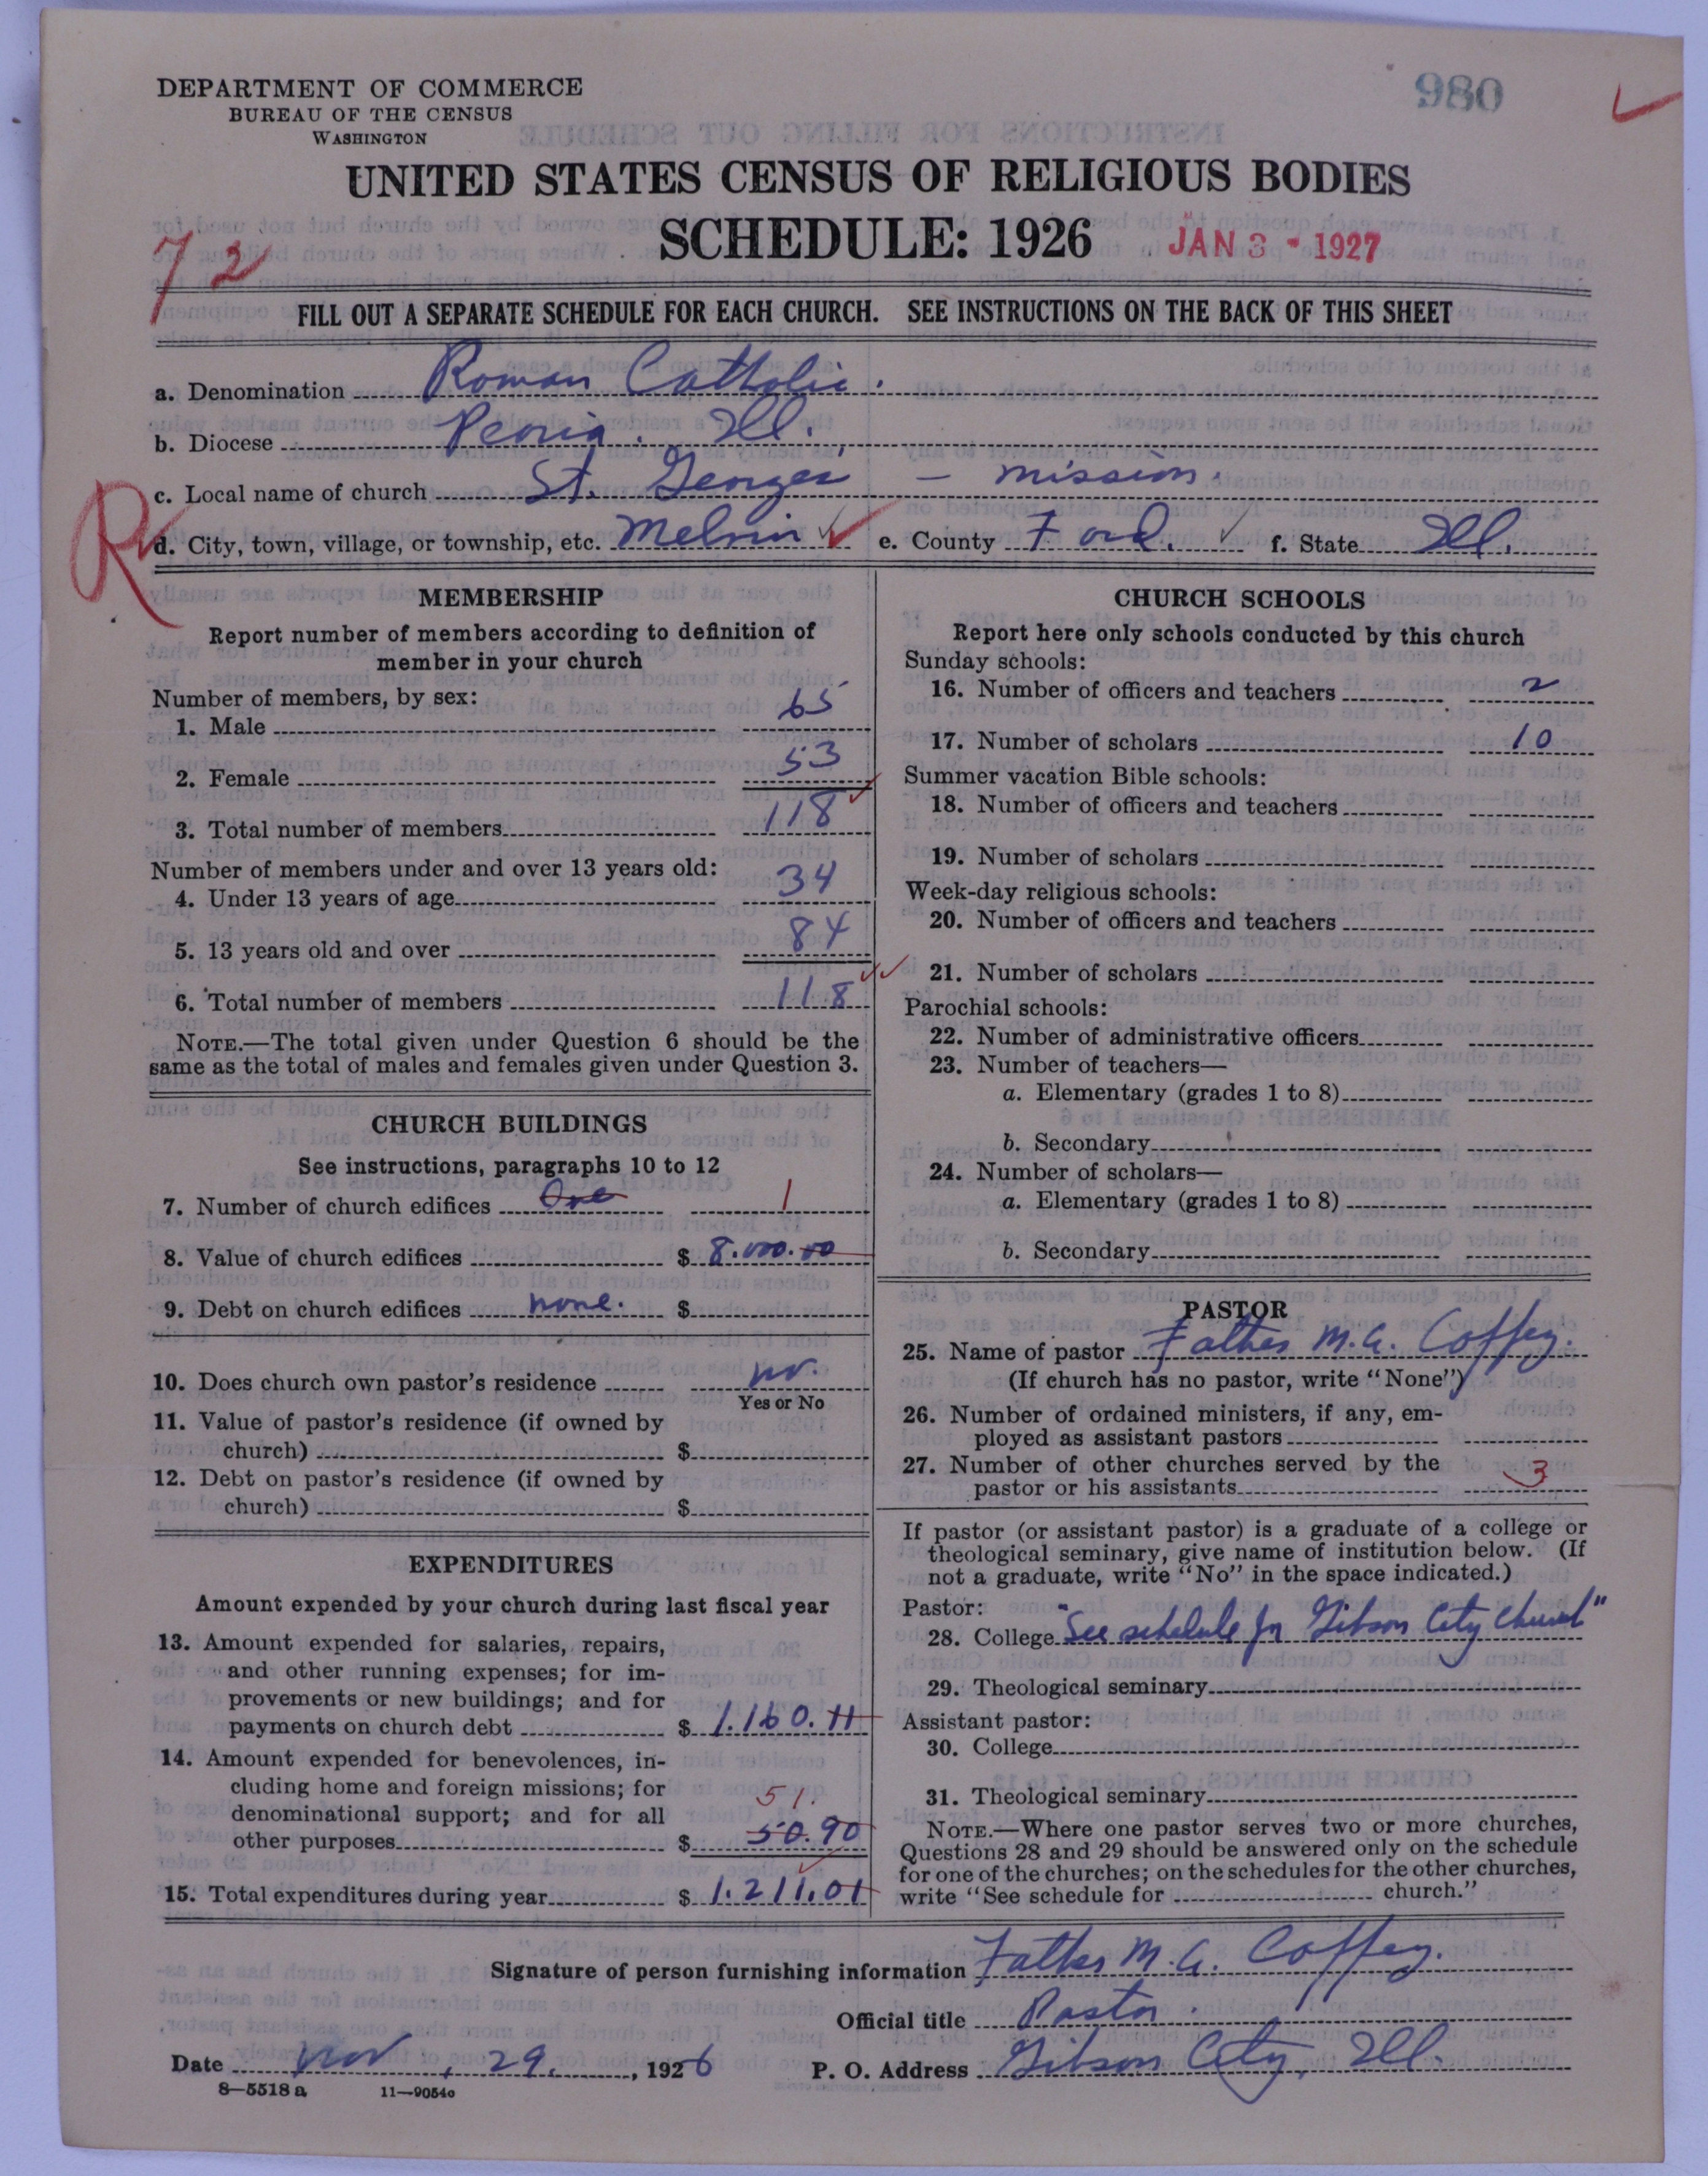 DEPARTMENT OF COMMERCE
BUREAU OF THE CENSUS
WASHINGTON
980
UNITED STATES CENSUS OF RELIGIOUS BODIES
SCHEDULE: 1926 JAN 3 - 1927
72
FILL OUT A SEPARATE SCHEDULE FOR EACH CHURCH. SEE INSTRUCTIONS ON THE BACK OF THIS SHEET
a. Denomination Roman Catholic.
b. Diocese Peoria. Ill.
c. Local name of church St. Georges - mission.
R
d. City, town, village, or township, etc. Melvin e. County Ford. f. State Ill.
MEMBERSHIP
Report number of members according to definition of
member in your church
Number of members, by sex:
1. Male 65
2. Female 53
3. Total number of members 118
Number of members under and over 13 years old:
4. Under 13 years of age 34
5. 13 years old and over 84
6. Total number of members 118
NOTE.—The total given under Question 6 should be the
same as the total of males and females given under Question 3.
CHURCH BUILDINGS
See instructions, paragraphs 10 to 12
7. Number of church edifices One 1
8. Value of church edifices $ 8.000.00
9. Debt on church edifices none. $
10. Does church own pastor's residence no.
Yes or No
11. Value of pastor's residence (if owned by
church) $
12. Debt on pastor's residence (if owned by
church) $
EXPENDITURES
Amount expended by your church during last fiscal year
13. Amount expended for salaries, repairs,
and other running expenses; for im-
provements or new buildings; and for
payments on church debt $ 1.160.11
14. Amount expended for benevolences, in-
cluding home and foreign missions; for
denominational support; and for all 51.
other purposes $ 50.90
15. Total expenditures during year $ 1.211.01
CHURCH SCHOOLS
Report here only schools conducted by this church
Sunday schools:
16. Number of officers and teachers 2
17. Number of scholars 10
Summer vacation Bible schools:
18. Number of officers and teachers
19. Number of scholars
Week-day religious schools:
20. Number of officers and teachers
21. Number of scholars
Parochial schools:
22. Number of administrative officers
23. Number of teachers—
a. Elementary (grades 1 to 8)
b. Secondary
24. Number of scholars—
a. Elementary (grades 1 to 8)
b. Secondary
PASTOR
25. Name of pastor Father M.A. Coffey.
(If church has no pastor, write "None")
26. Number of ordained ministers, if any, em-
ployed as assistant pastors
27. Number of other churches served by the
pastor or his assistants 3
If pastor (or assistant pastor) is a graduate of a college or
theological seminary, give name of institution below. (If
not a graduate, write "No" in the space indicated.)
Pastor:
28. College "See schedule for Gibson City Church"
29. Theological seminary
Assistant pastor:
30. College
31. Theological seminary
NOTE.—Where one pastor serves two or more churches,
Questions 28 and 29 should be answered only on the schedule
for one of the churches; on the schedules for the other churches,
write "See schedule for church."
Signature of person furnishing information Father M.A. Coffey.
Official title Pastor.
Date Nov, 29, 1926 P. O. Address Gibson City, Ill.
8—5518 a 11—9054o